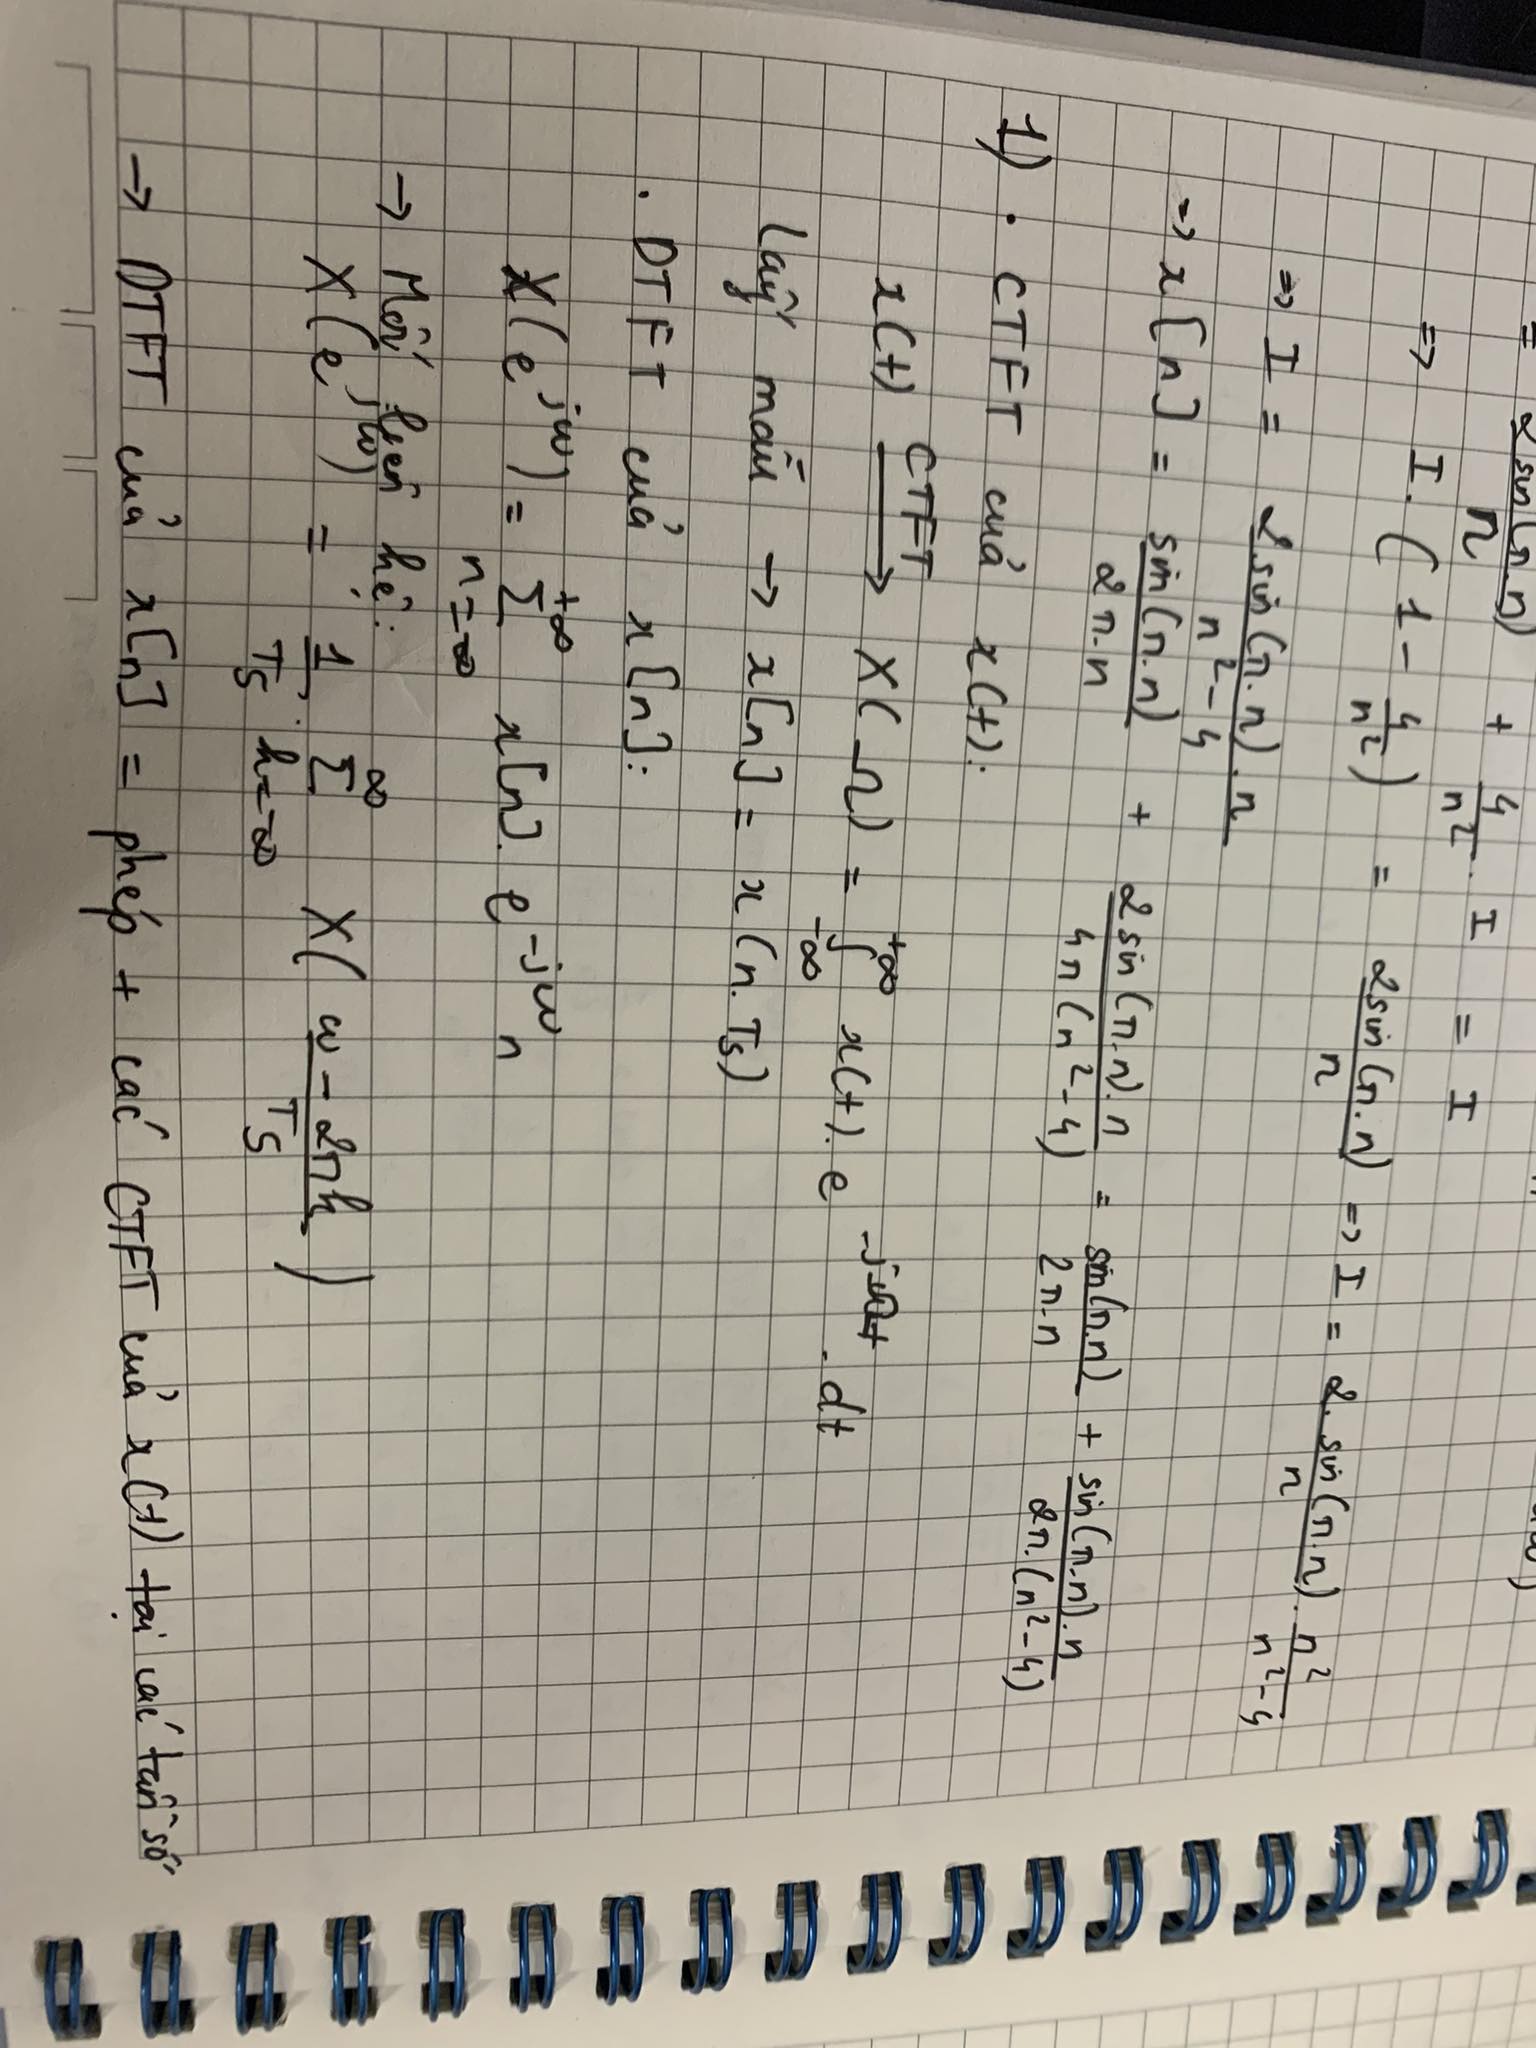 = 2sin(π.n)/n + 4/n² . I = I
=> I. (1 - 4/n²) = 2sin(π.n)/n => I = 2.sin(π.n)/n . n²/(n²-4)
=> I = 2sin(π.n).n/(n²-4)
=> x[n] = sin(π.n)/(2π.n) + 2sin(π.n).n/(4π(n²-4)) = sin(π.n)/(2π.n) + sin(π.n).n/(2π.(n²-4))
1) . CTFT của x(t):
x(t) —CTFT→ X(Ω) = ∫_{-∞}^{+∞} x(t). e^{-jΩt} . dt
Lấy mẫu → x[n] = x(n.Ts)
. DTFT của x[n]:
X(e^{jω}) = Σ_{n=-∞}^{+∞} x[n]. e^{-jω}n
→ Mối liên hệ:
X(e^{jω}) = 1/Ts . Σ_{k=-∞}^{∞} X((ω - 2πk)/Ts)
→ DTFT của x[n] = phép + các CTFT của x(t) tại các tần số